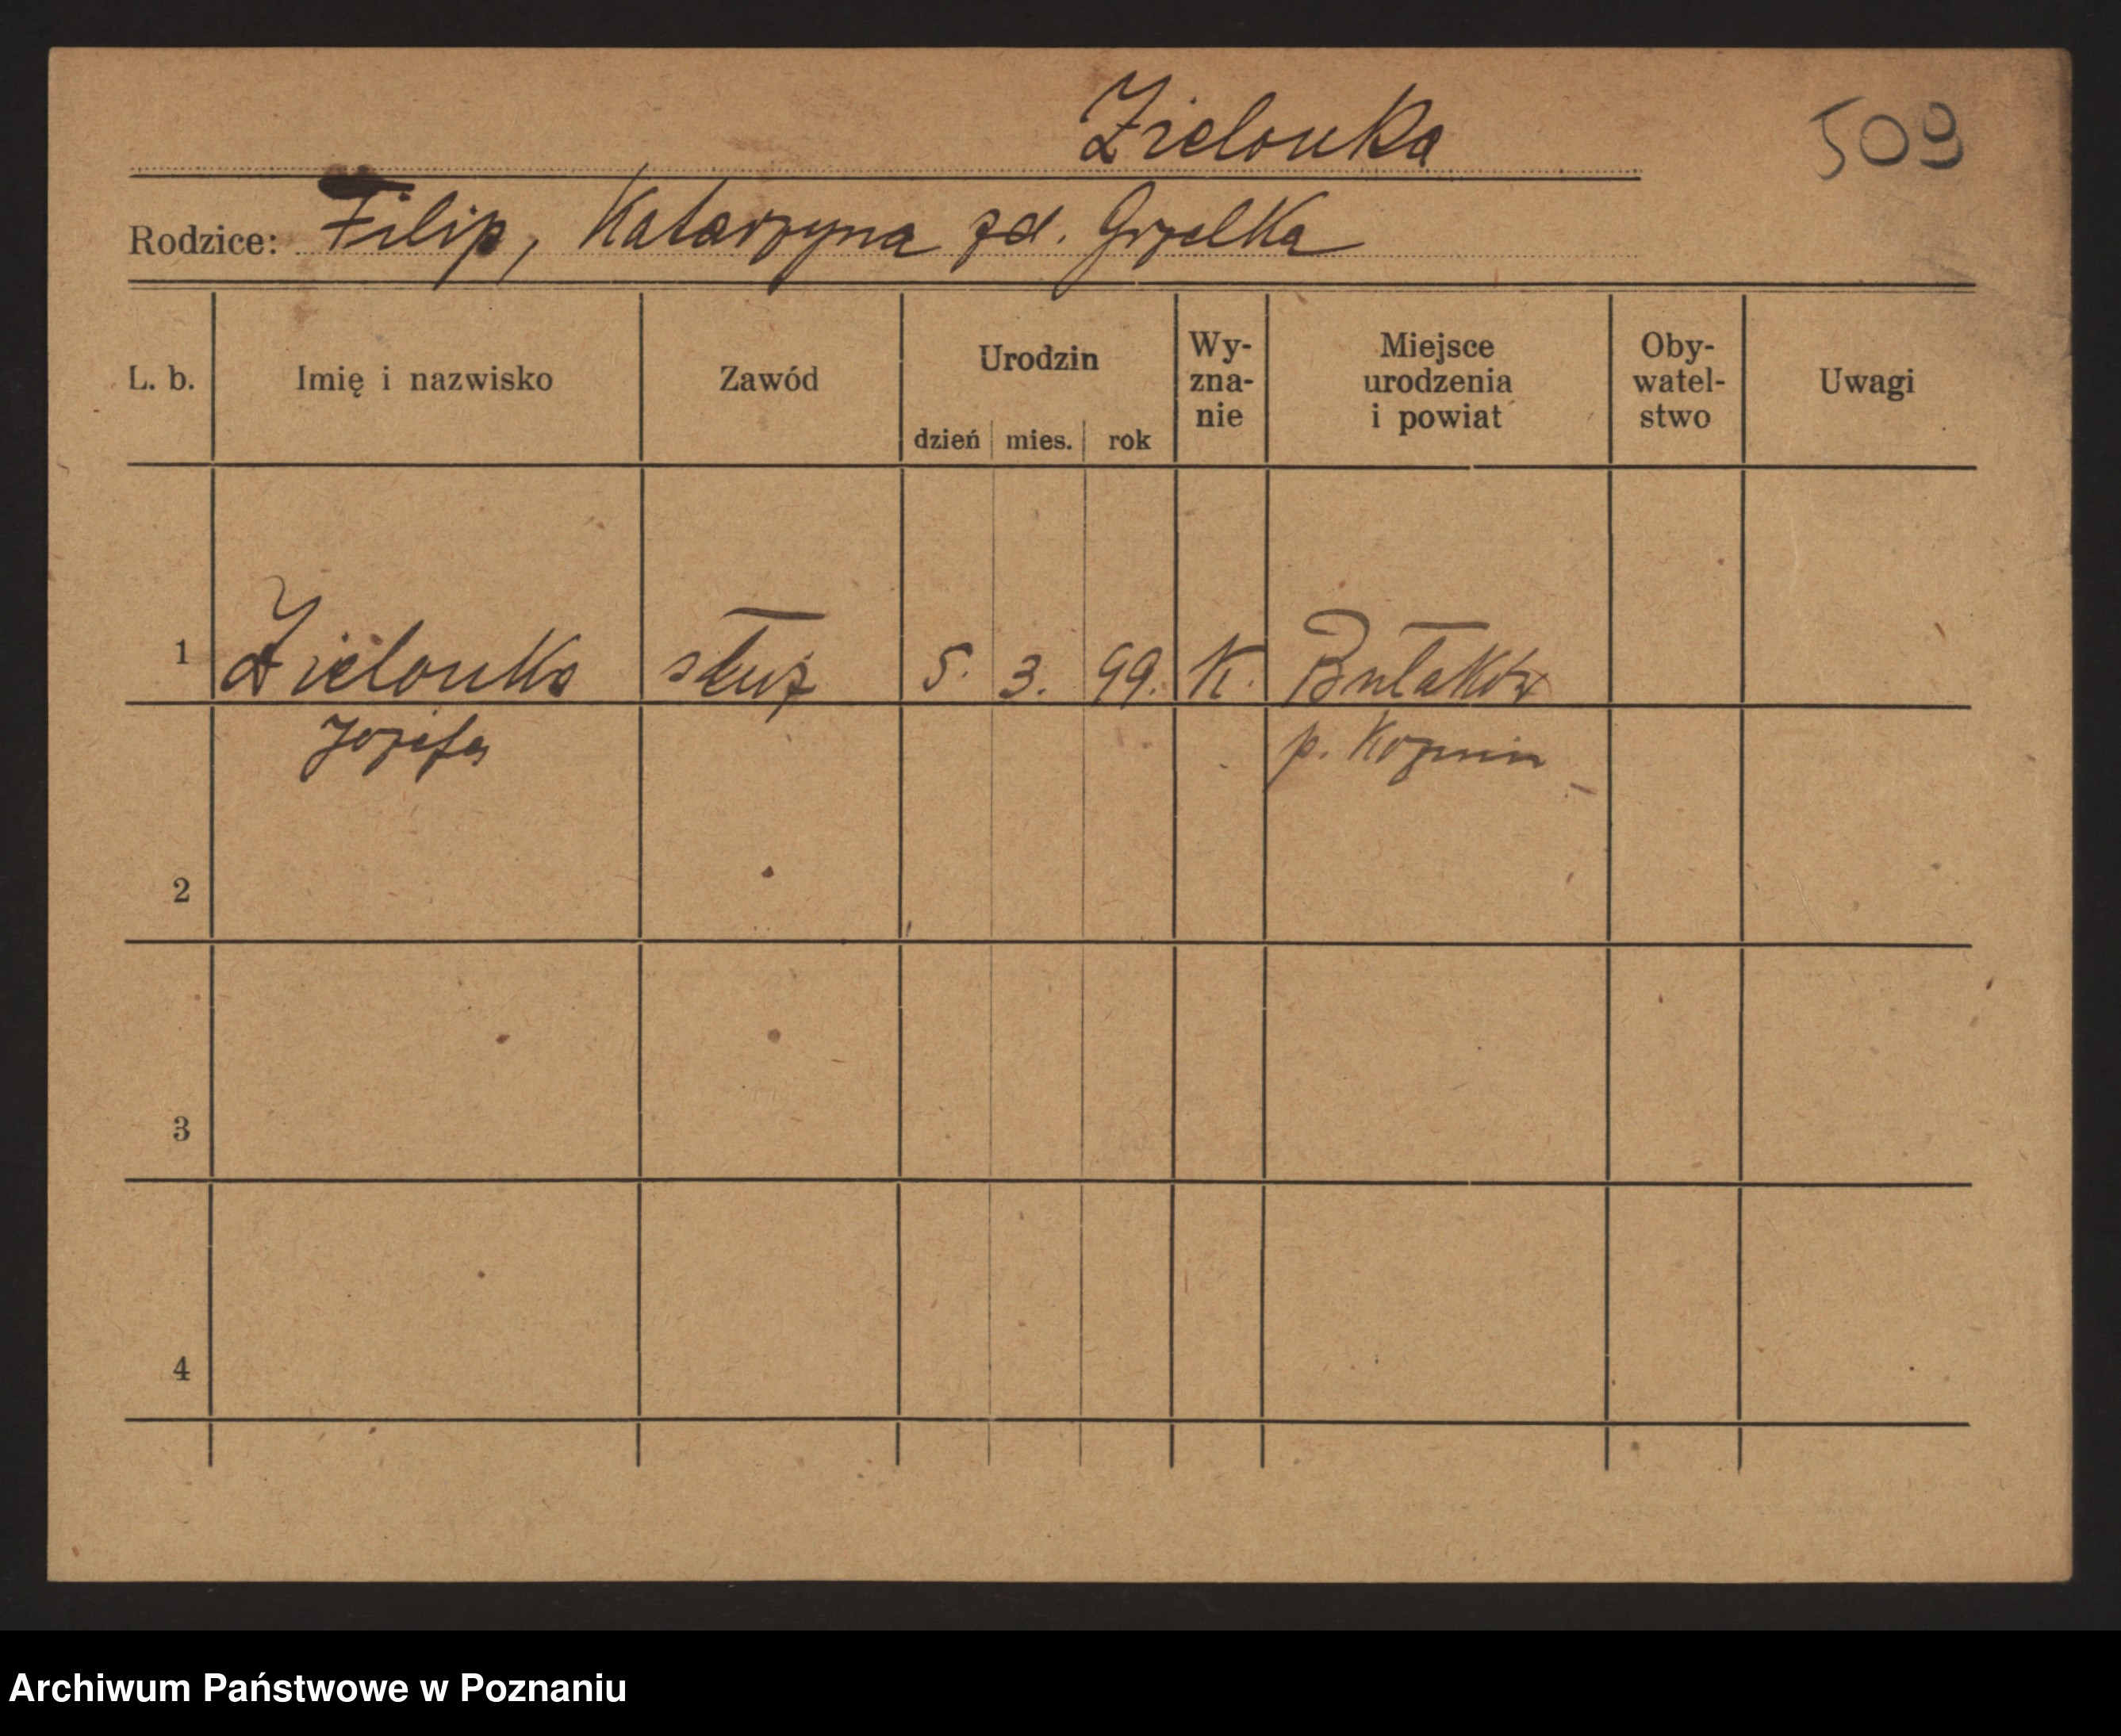 Zielonka
509
Rodzice: Filip, Katarzyna zd. Grzelka
L. b. Imię i nazwisko Zawód Urodzin dzień mies. rok Wy-zna-nie Miejsce urodzenia i powiat Oby-watel-stwo Uwagi
1 Zielonka służ 5. 3. 99. K. Bułaków
Józefa p. Koźmin
2
3
4
Archiwum Państwowe w Poznaniu